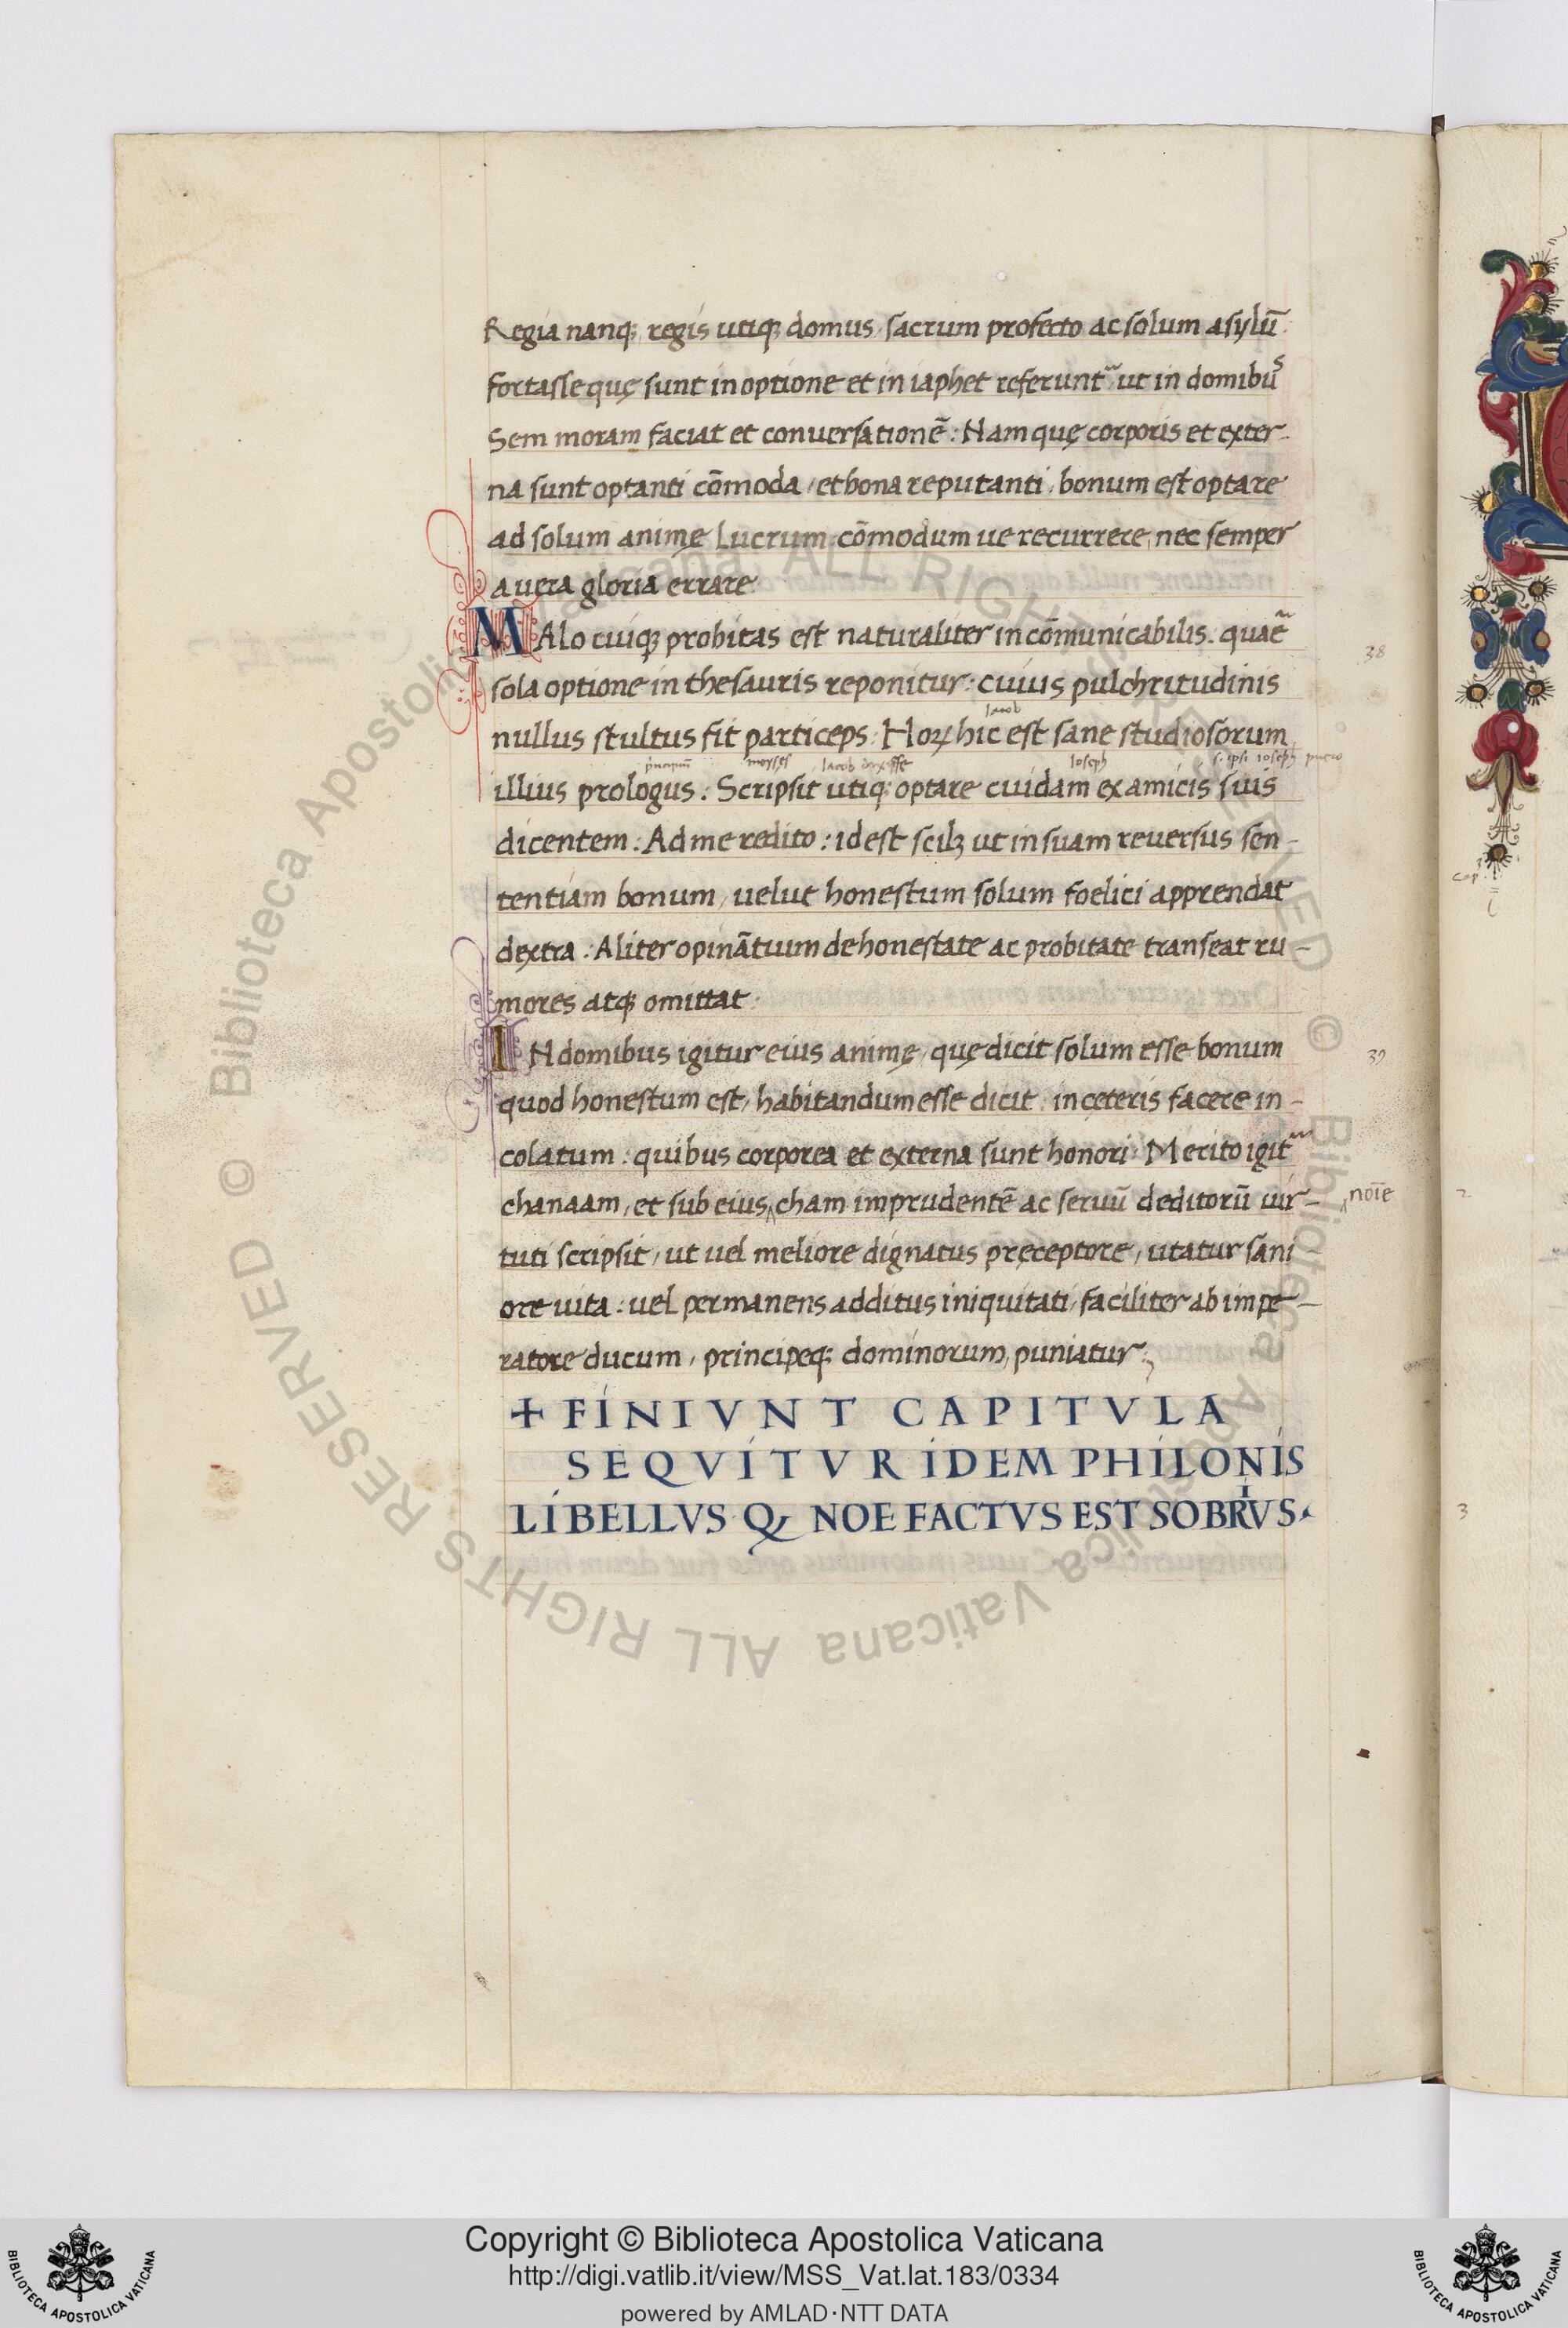 Regia nanq; regis utiq; domus, sacrum profecto ac solum asylũ:
fortasse quę sunt in optione et in iaphet referunt᷑ ut in domibuˢ
Sem moram faciat et conuersationē: Nam quę corporis et exter-
na sunt optanti cōmoda, et bona reputanti, bonum est optare
ad solum animę Lucrum, cōmodum ue recurrere, nec semper
a uera gloria errare.
MAlo cuiq; probitas est naturaliter incōmunicabilis. quae᷑
sola optione in thesauris reponitur: cuius pulchritudinis
Iacob
nullus stultus fit particeps: Hoꝝ hic est sane studiosorum
moyses Iacob dixisse Ioseph s. ipsi ioseph puero
illius prologus: Scripsit utiq; optare cuidam ex amicis suis
dicentem: Ad me redito: id est scilꝫ ut in suam reuersus sen-
tentiam bonum, uelut honestum solum foelici apprendat
dextra: Aliter opinātium de honestate ac probitate transeat ru-
mores atq; omittat:
IN domibus igitur eius animę, quę dicit solum esse bonum
quod honestum est, habitandum esse dicit: in ceteris facere in-
colatum: quibus corporea et externa sunt honori: Merito igit᷑
chanaam, et sub eius ‸ cham imprudentē ac seruũ deditorũ uir-
noīe
tuti scripsit, ut uel meliore dignatus pręceptore, utatur sani-
ore uita: uel permanens additus iniquitati, faciliter ab impe-
ratore ducum, principeq; dominorum, puniatur;
+ FINIVNT CAPITVLA
SEQVITVR IDEM PHILONIS
LIBELLVS Q NOE FACTVS EST SOBRIVS
38
39
2
3
Copyright © Biblioteca Apostolica Vaticana
http://digi.vatlib.it/view/MSS_Vat.lat.183/0334
powered by AMLAD·NTT DATA
BIBLIOTECA APOSTOLICA VATICANA
BIBLIOTECA APOSTOLICA VATICANA
© Biblioteca Apostolica Vaticana ALL RIGHTS RESERVED
© Biblioteca Apostolica Vaticana ALL RIGHTS RESERVED